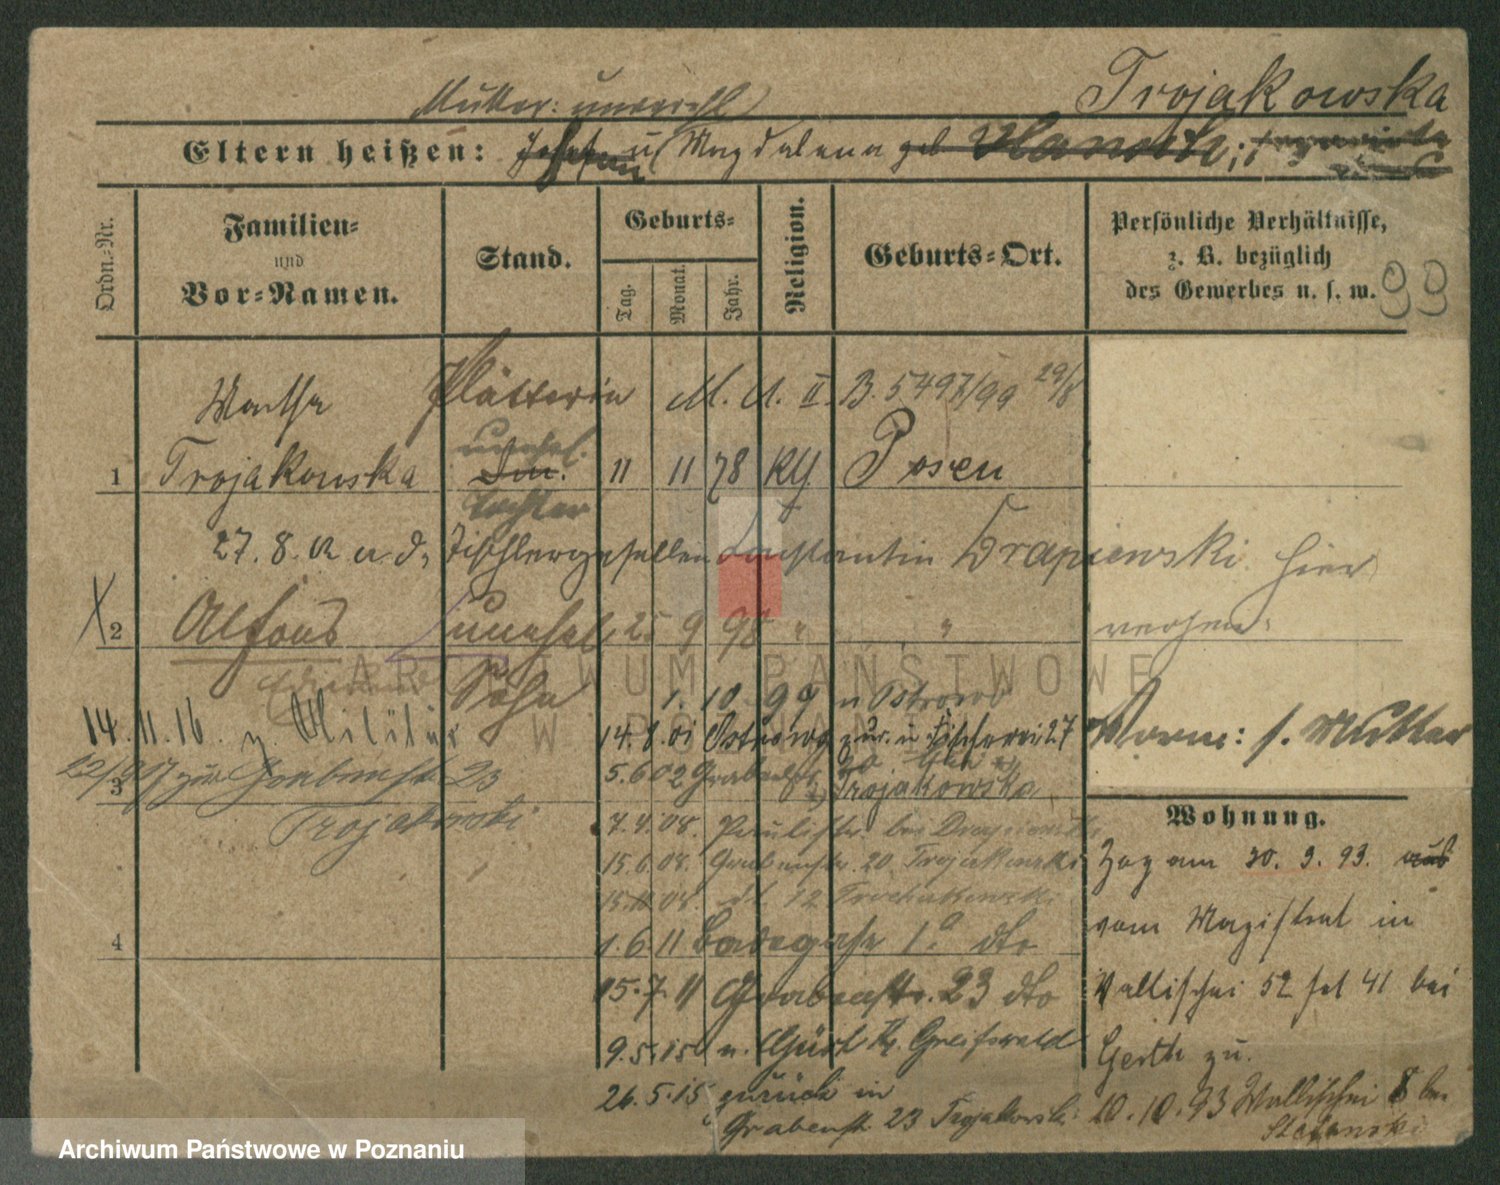 Trojakowska
Mutter: unverehl
Eltern heißen: u Magdalena geb
Ordn.-Nr.
Familien-
und
Vor-Namen.
Stand.
Geburts-
Tag.
Monat.
Jahr.
Religion.
Geburts-Ort.
Persönliche Verhältnisse,
z. B. bezüglich
des Gewerbes u. s. w.
99
Plätterin M. A. II. B. 5497/99 29/8
Martha
unehel.
1 Trojakowska 11 11 78 Kth Posen
Tochter
27. 8. Tischlergesellen Constantin Drapiewski hier
X 2 Alfons unehel 25 9 98 " " verheir.
Sohn 1. 10. 99 n Ostrowo
14. 11. 16. z. Militär 14. 8. 01 Ostrowo zur. u Fischerei 27
Norm: s. Mutter
3 Grabenstr 23 5. 6. 02 Grabenstr 20 Trojakowska
Trojakowski
7. 4. 08. Paulistr. bei Drapiewski
15. 6. 08. Grabenstr. 20. Trojakowski
15. 08. 12
4 1. 6. 11 Badegasse 1a dto
15. 7. 11 Grabenstr. 23 dto
9. 5. 15 n. Kr. Greifswald
26. 5. 15 zurück in
Grabenstr 23 Trojakowski
Wohnung.
Zog am 30. 9. 93. aus
vom Magistrat in
Wallischei 52 41 bei
Gerth zu.
10. 10. 93 Wallischei 8 bei
Stefanski
ARCHIWUM PAŃSTWOWE
W POZNANIU
Archiwum Państwowe w Poznaniu